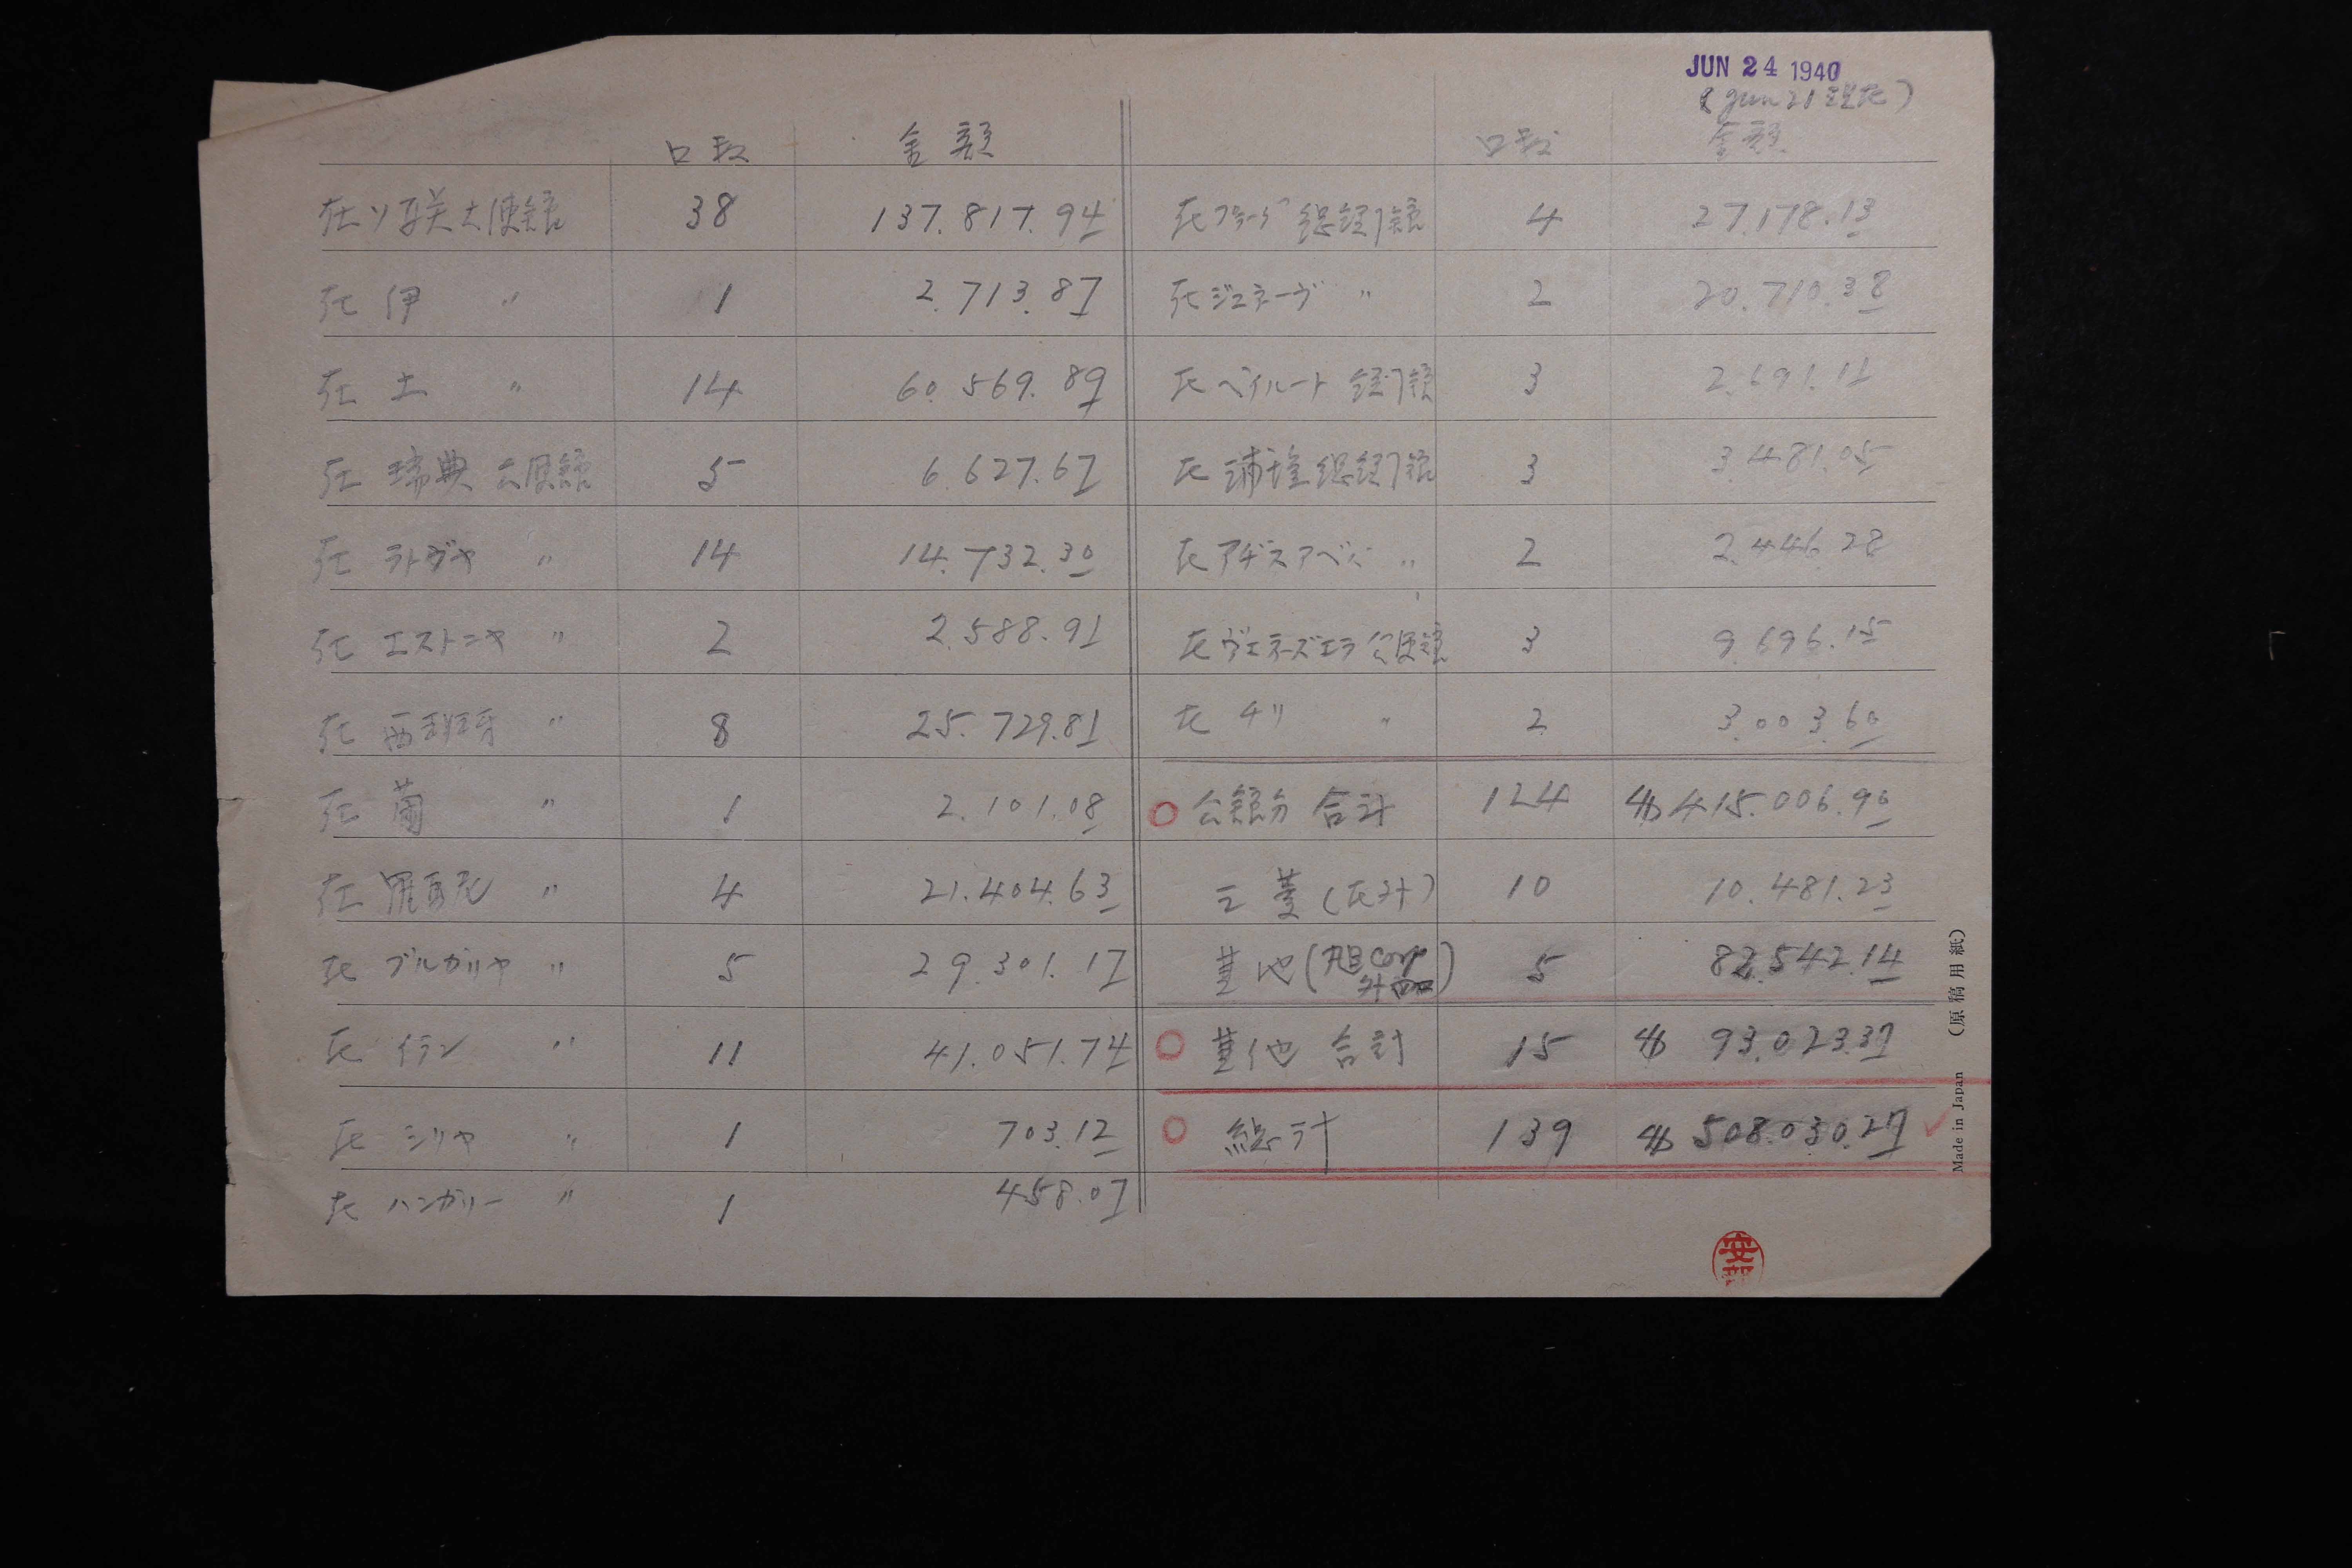 JUN 24 1940
(Jun 21 現在)
口数 金額
在ソ联大使館 38 137.817.94
在 伊 〃 1 2.713.87
在 土 〃 14 60.569.89
在 瑞典 公使館 5 6.627.67
在 ラトヴヤ 〃 14 14.732.30
在 エストニヤ 〃 2 2.588.91
在 西班牙 〃 8 25.729.81
在 葡 〃 1 2.101.08
在 羅馬尼 〃 4 21.404.63
在 ブルガリヤ 〃 5 29.301.17
在 イラン 〃 11 41.051.74
在 シリヤ 〃 1 703.12
在 ハンガリー 〃 1 458.07
口数 金額
在プラーグ 総領館 4 27.178.13
在ジュネーヴ 〃 2 20.710.38
在ベイルート 領館 3 2.691.11
在 浦塩 総領館 3 3.481.05
在アヂスアベバ 〃 2 2.446.28
在ヴェネズエラ公使館 3 9.696.15
在 チリ 〃 2 3.003.60
公館分 合計 124 $415.006.90
三菱(在外) 10 10.481.23
其他( Corp ) 5 82.542.14
其他 合計 15 $ 93.023.37
総計 139 $ 508.030.27
Made in Japan (原稿用紙)